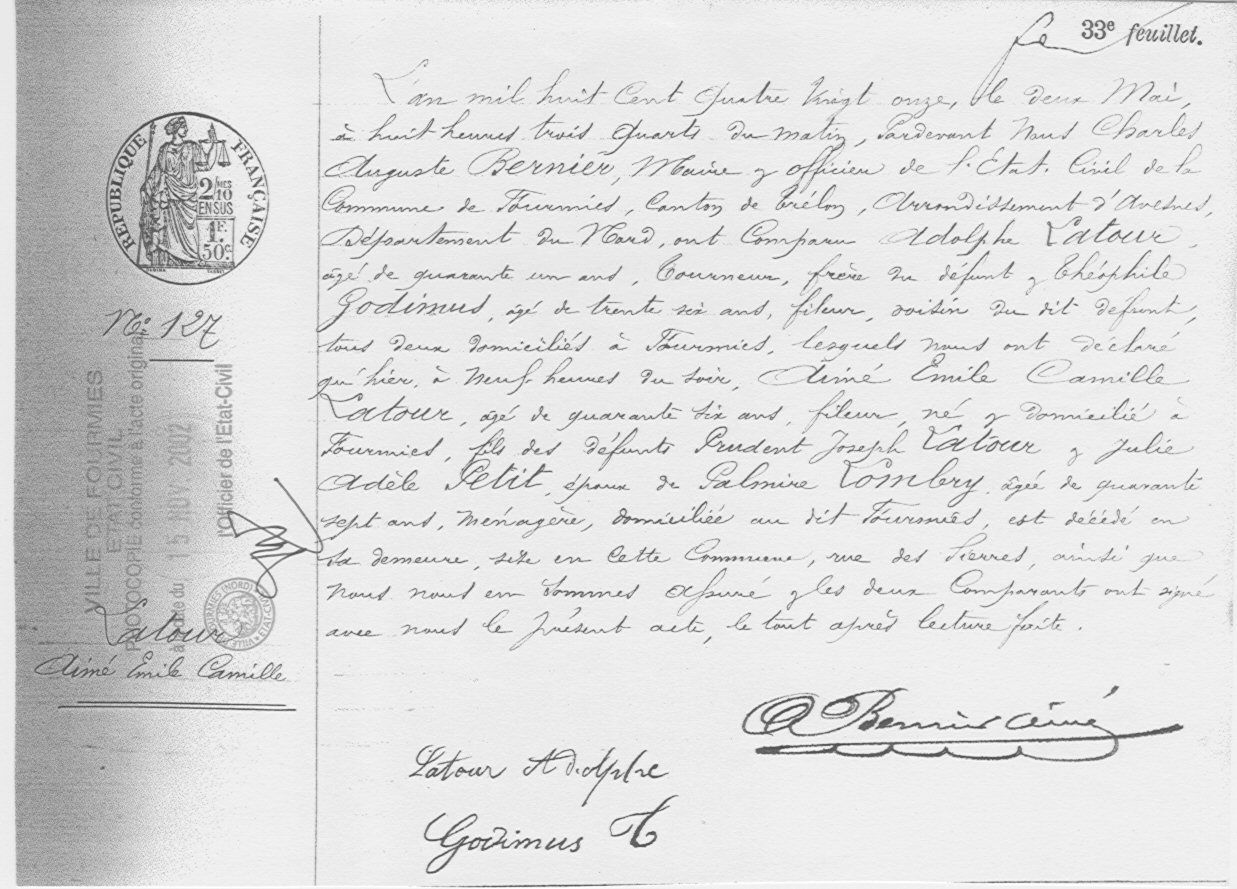 33e feuillet.
L'an mil huit Cent Quatre Vingt onze, le deux Mai,
à huit heures trois quarts du matin, Pardevant Nous Charles
Auguste Bernier, Maire & officier de l'Etat. Civil de la
Commune de Fourmies, Canton de Trélon, Arrondissement d'Avesnes,
Département du Nord, ont Comparu Adolphe Latour,
âgé de quarante un ans, Tourneur, frère du défunt & Théophile
Godimus, âgé de trente six ans, fileur, voisin du dit défunt,
tous deux domiciliés à Fourmies, lesquels nous ont déclaré
qu'hier, à Neuf heures du soir, Aimé Emile Camille
Latour, âgé de quarante six ans, fileur, né & domicilié à
Fourmies, fils des défunts Prudent Joseph Latour & Julie
Adèle Petit, époux de Palmire Lombry, âgée de quarante
sept ans, Ménagère, domiciliée au dit Fourmies, est décédé en
sa demeure, site en Cette Commune, rue des Pierres, ainsi que
Nous nous en sommes assuré & les deux Comparants ont signé
avec nous le présent acte, le tout après lecture faite.
A Bernier aîné
Latour Adolphe
Godimus T
REPUBLIQUE FRANÇAISE
2/10 MES
EN SUS
1F.
50c.
No: 127
VILLE DE FOURMIES
ETAT CIVIL
PHOTOCOPIE conforme à l'acte original
à la date du 15 NOV 2002
l'Officier de l'Etat-Civil
Latour
Aimé Emile Camille